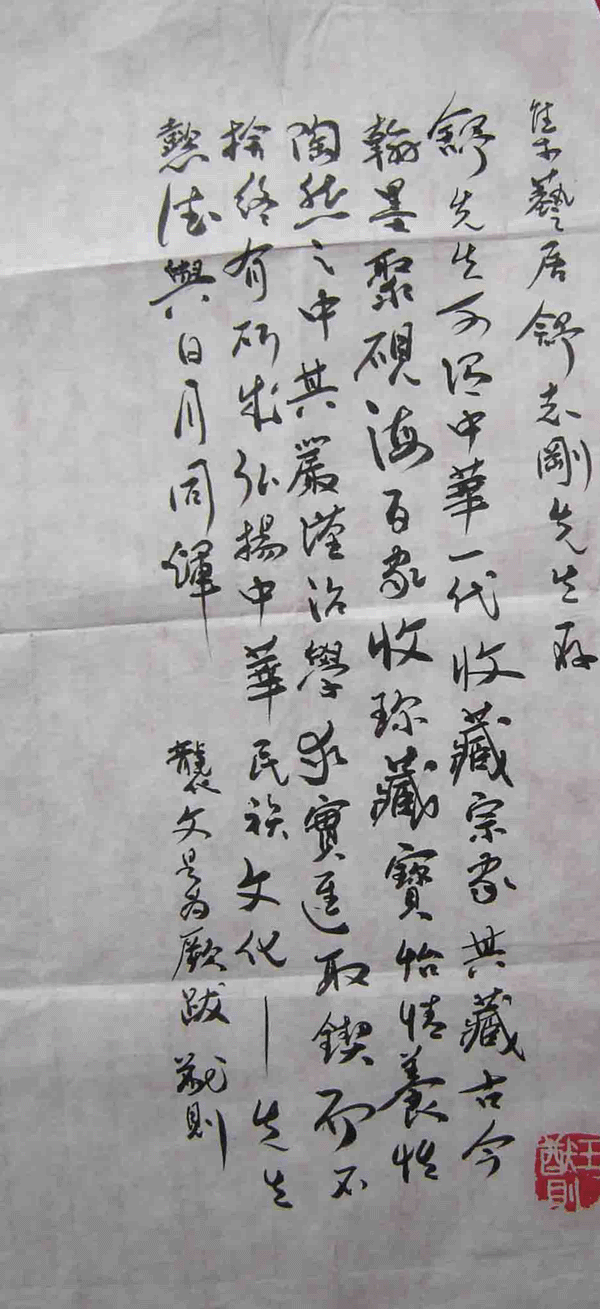 集藝居舒志剛先生存
舒先生可谓中華一代收藏宗家其藏古今
翰墨聚硯海百家收珍藏寶怡情養性
陶然之中其嚴谨治學求實進取鍥而不
捨终有所成弘揚中華民族文化一先生
懿德與日月同輝
龔文是為厥跋 猷則
王猷則